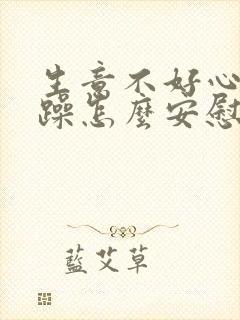 生意不好心
躁怎麼安慰
藍艾草